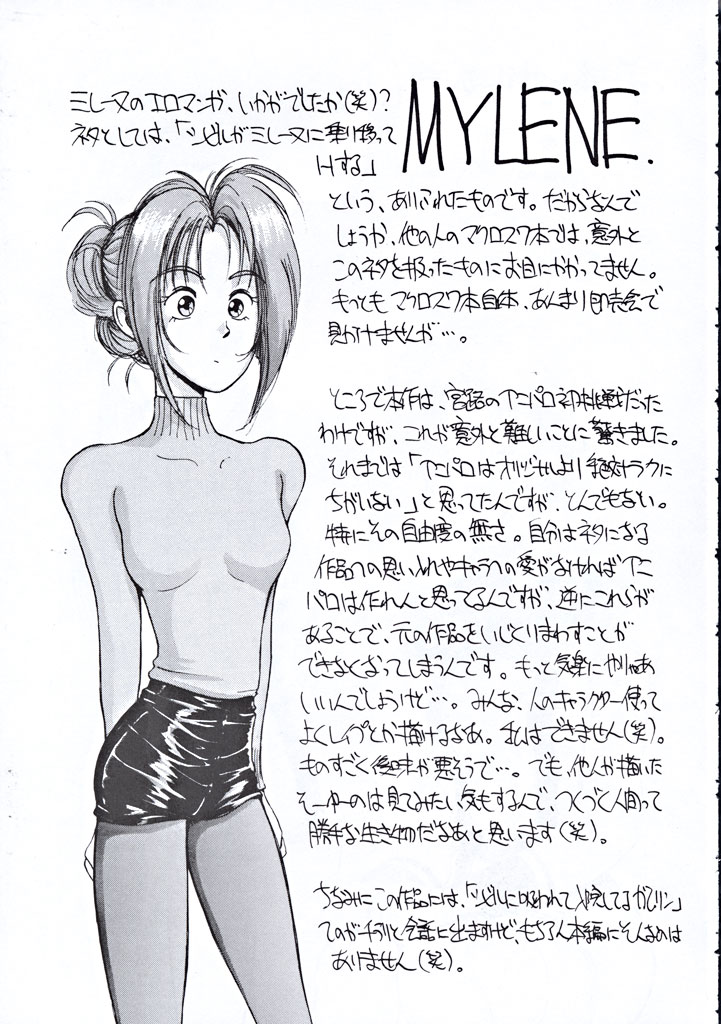 MYLENE.
ミレーヌのエロマンガ、いかがでしたか(笑)?
ネタとしては、「シビルがミレーヌに乗り移って
Hする」
という、ありふれたものです。だからなんで
しょうか、他の人のマクロス7本では、意外と
このネタを扱ったものにお目にかかってません。
もっともマクロス7本自体、あんまり即売会で
見かけませんが…。
ところで本作は、宮路のアニパロ初挑戦だった
わけですが、これが意外と難しいことに驚きました。
それまでは「アニパロはオリジナルより絶対ラクに
ちがいない」と思ってたんですが、とんでもない。
特にその自由度の無さ。自分はネタになる
作品への思い入れやキャラへの愛がなければアニ
パロは作れんと思ってるんですが、逆にこれらが
あることで、元の作品をいじくりまわすことが
できなくなってしまうんです。もっと気楽にやりゃあ
いいんでしょうけど…。みんな、人のキャラクター使って
よくレイプとか描けるなあ。私はできません(笑)。
ものすごく後味が悪そうで…。でも、他人が描いた
そーゆーのは見てみたい気もするんで、つくづく人間って
勝手な生き物だなあと思います(笑)。
ちなみにこの作品には、「シビルに吸われて入院してるガムリン」
てのがチラリと会話に出ますけど、もちろん本編にそんなのは
ありません(笑)。